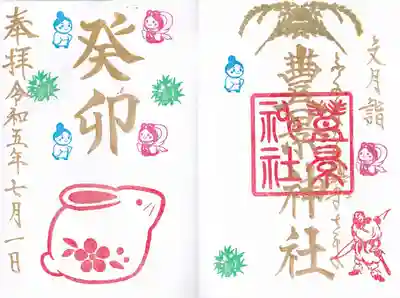 文月詣
豊景神社
豊景神社
癸卯
奉拝 令和五年七月一日